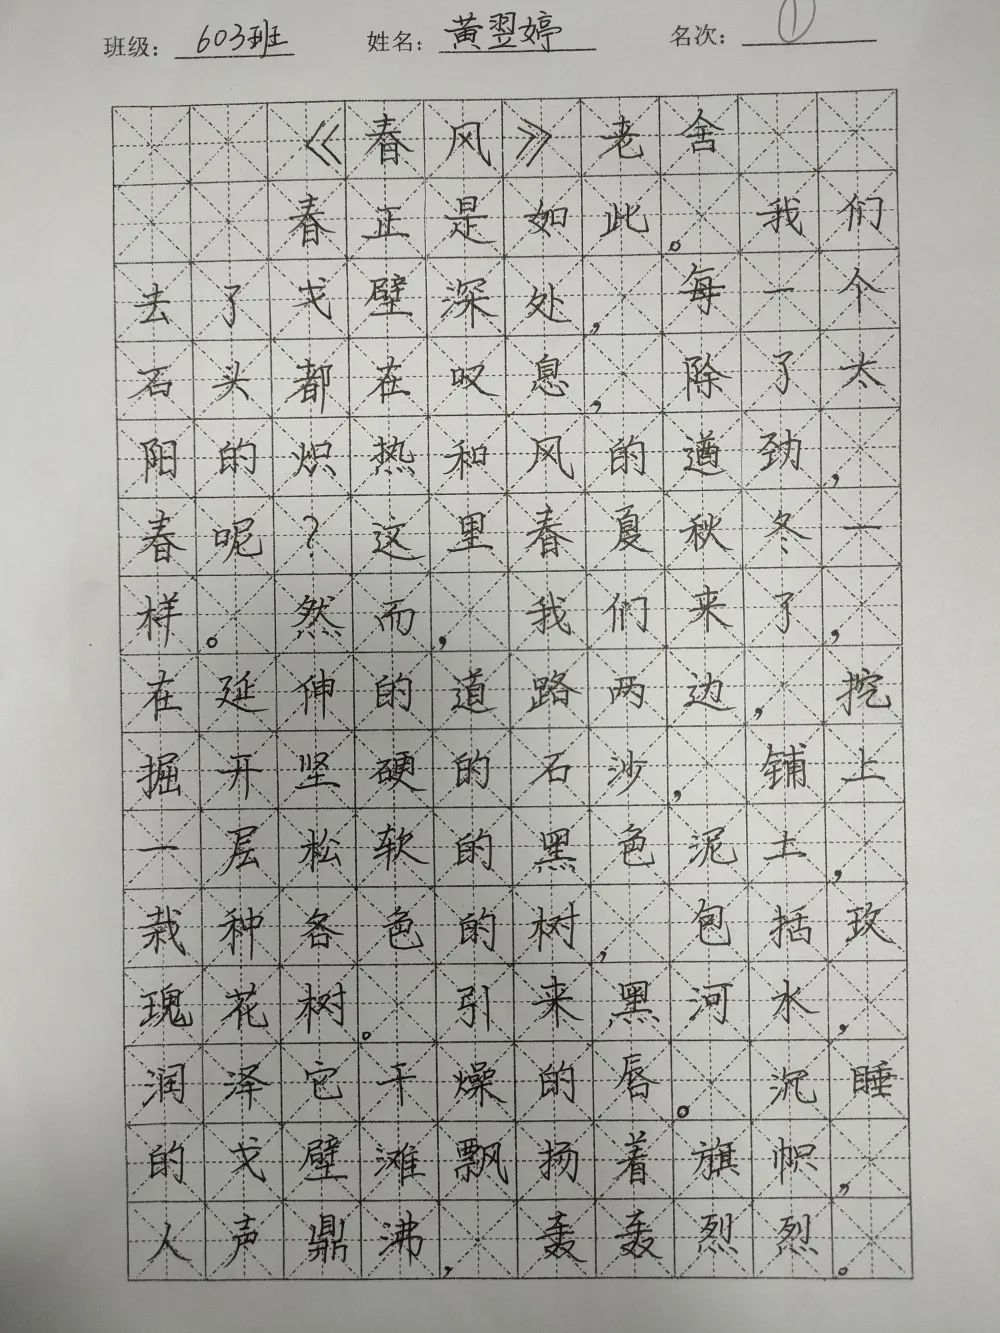 班级：603班 姓名：黄翌婷 名次：①
《春风》老舍
春正是如此。我们
去了戈壁深处，每一个
石头都在叹息，除了太
阳的炽热和风的遒劲，
春呢？这里春夏秋冬一
样。然而，我们来了，
在延伸的道路两边，挖
掘开坚硬的石沙，铺上
一层松软的黑色泥土，
栽种各色的树，包括玫
瑰花树。引来黑河水，
润泽它干燥的唇。沉睡
的戈壁滩飘扬着旗帜，
人声鼎沸，轰轰烈烈。